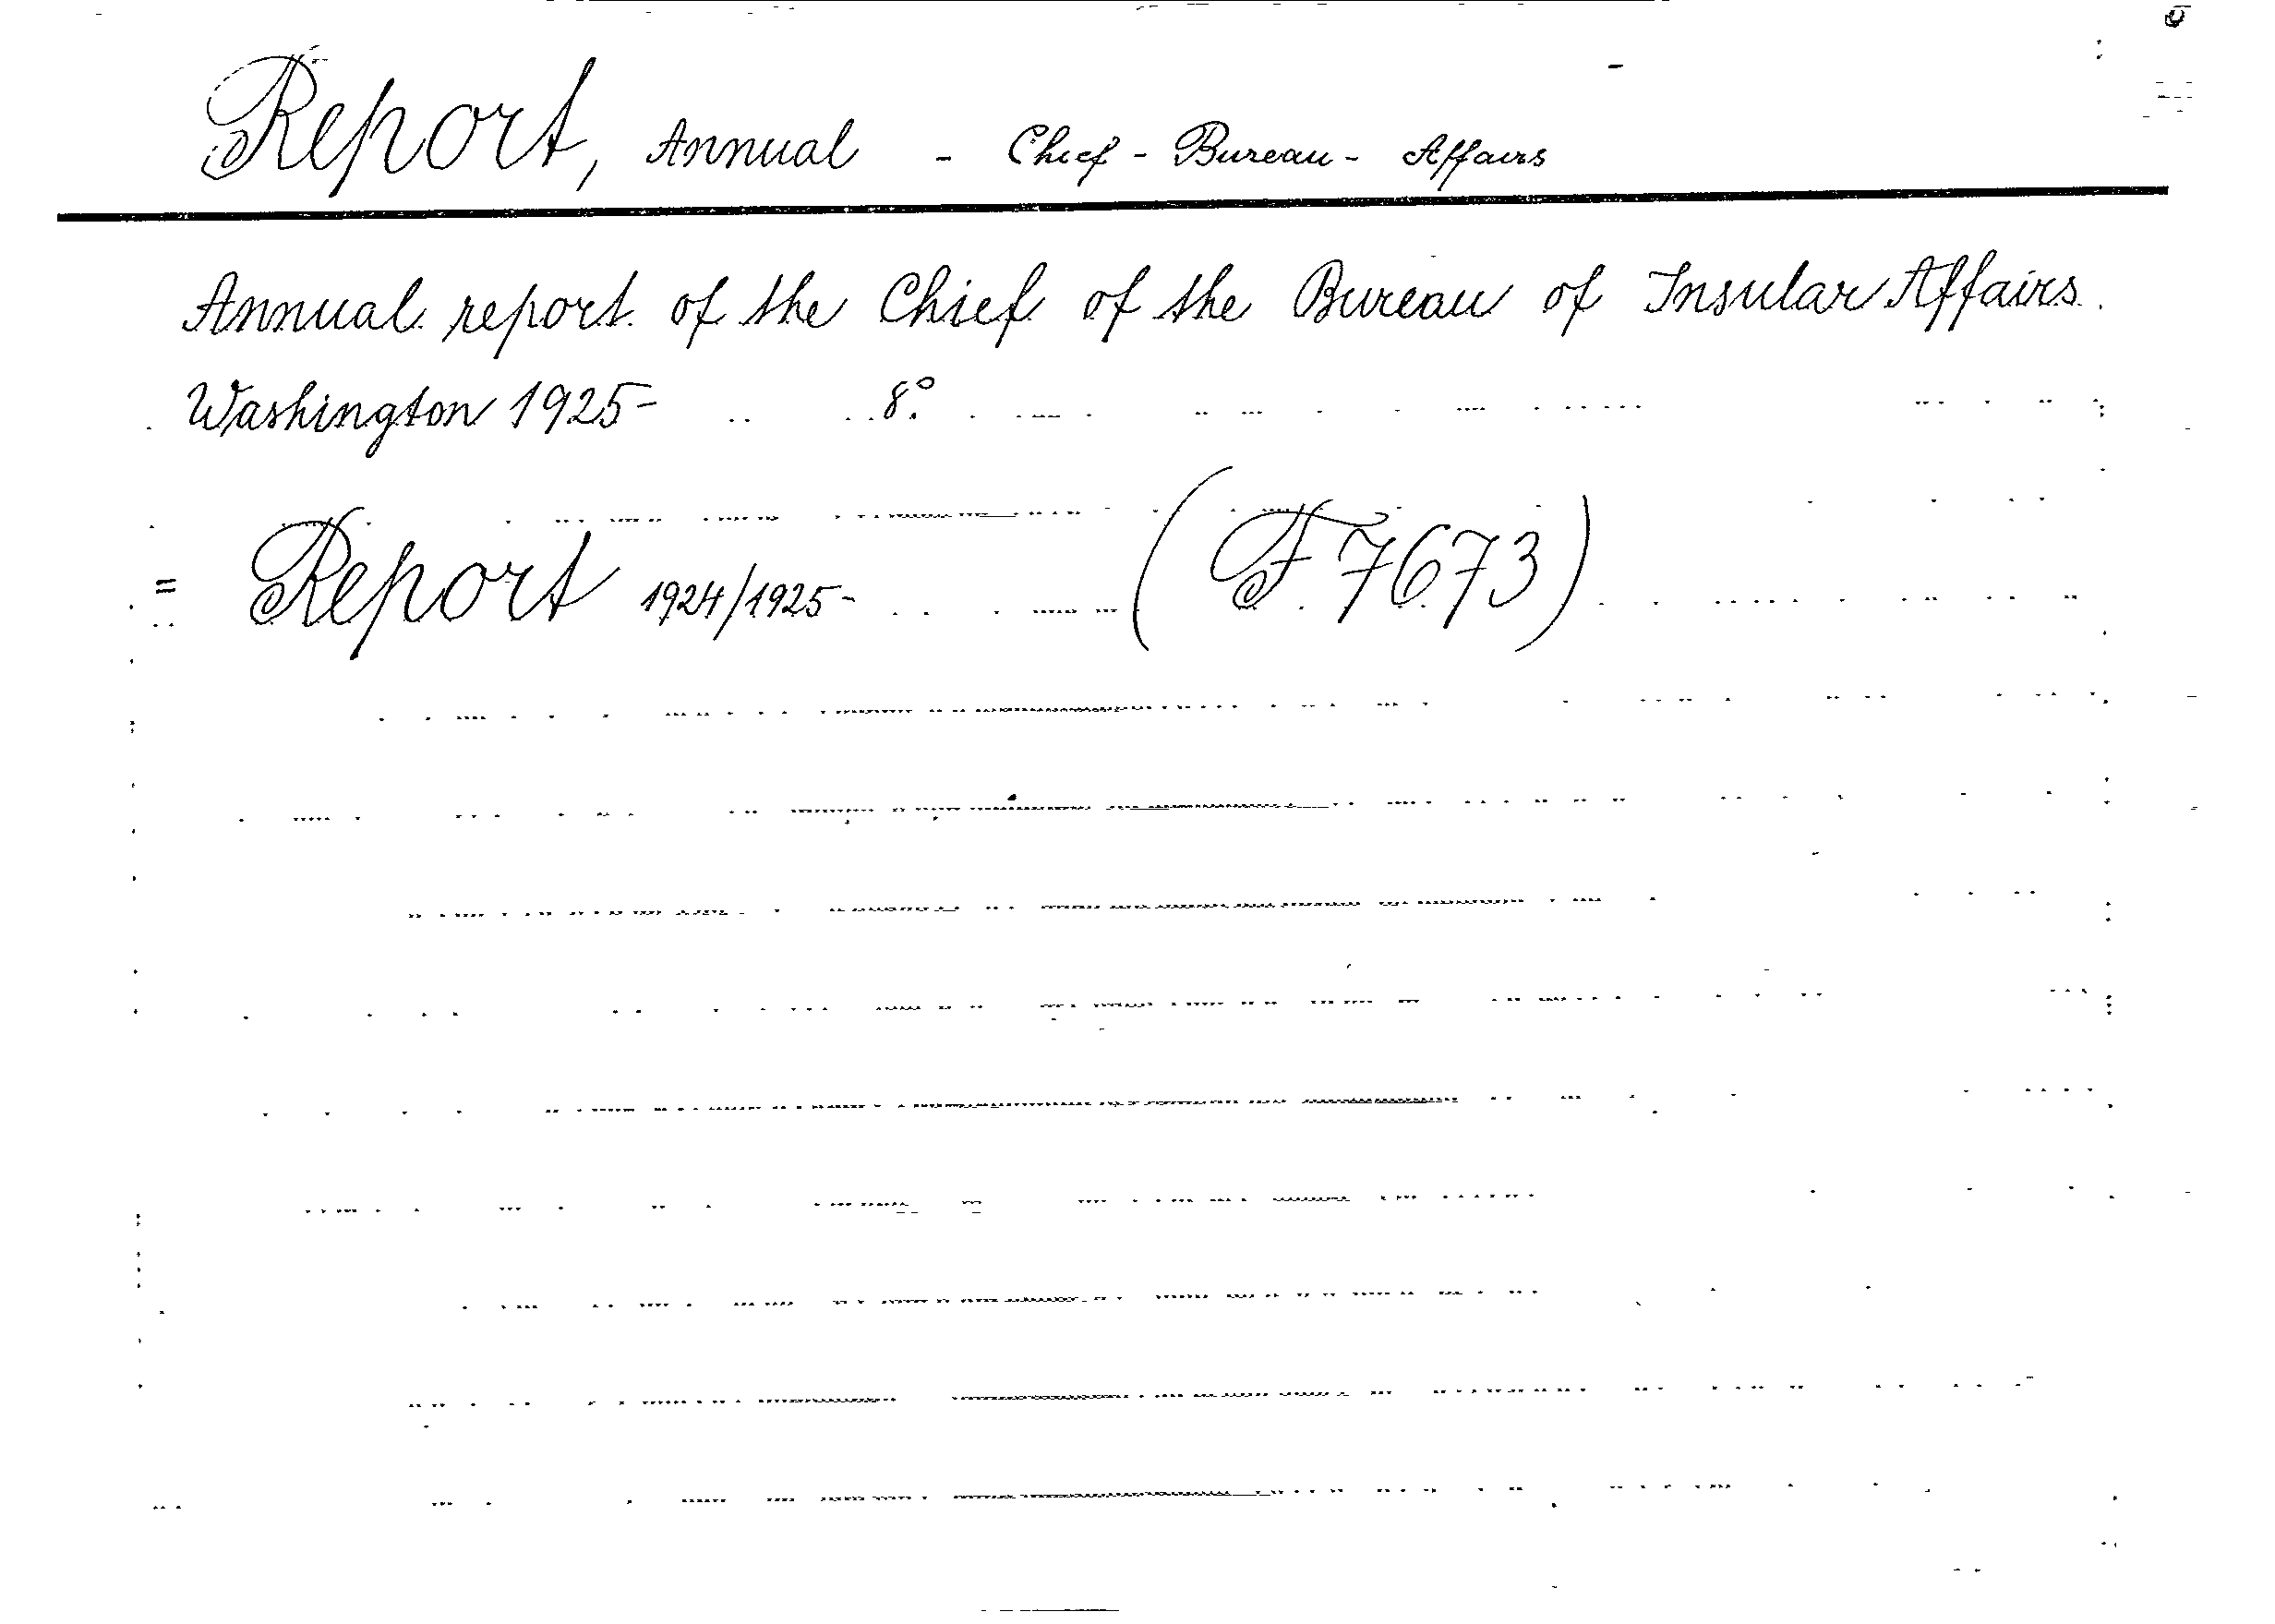 Report, Annual - Chief - Bureau - Affairs
Annual report of the Chief of the Bureau of Insular Affairs.
Washington 1925- 8°.
= Report 1924/1925- (F. 7673)